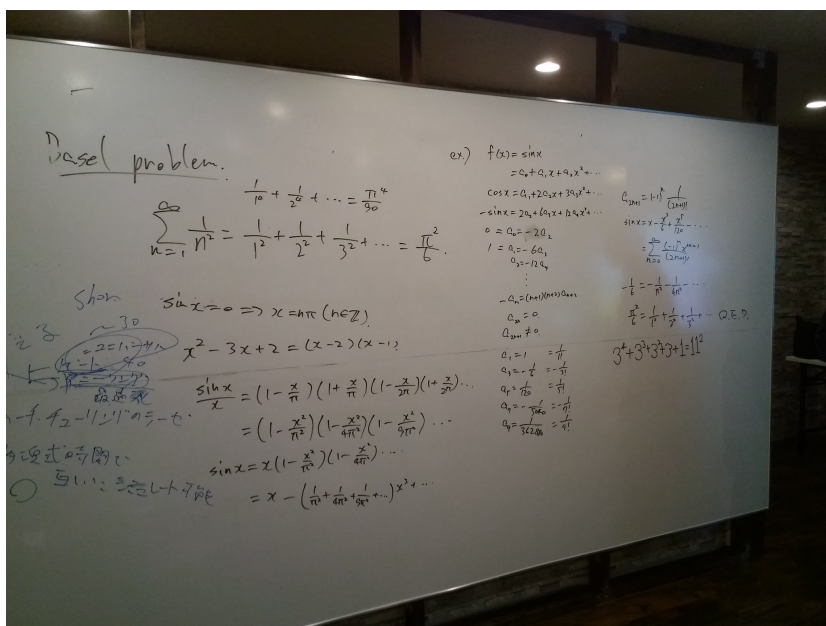 Basel problem.
1/1⁴ + 1/2⁴ + ⋯ = π⁴/90
∞∑n=1 1/n² = 1/1² + 1/2² + 1/3² + ⋯ = π²/6.
sin x = 0 => x = nπ (n∈ℤ)
x² − 3x + 2 = (x−2)(x−1)
sin x/x = (1 − x/π)(1 + x/π)(1 − x/2π)(1 + x/2π)⋯
= (1 − x²/π²)(1 − x²/4π²)(1 − x²/9π²)⋯
sin x = x(1 − x²/π²)(1 − x²/4π²)⋯
= x − (1/π² + 1/4π² + 1/9π² + ⋯)x³ + ⋯
ex.) f(x) = sin x
= a₀ + a₁x + a₂x² + ⋯
cos x = a₁ + 2a₂x + 3a₃x² + ⋯
−sin x = 2a₂ + 6a₃x + 12a₄x² + ⋯
0 = a₀ = −2a₂
1 = a₁ = −6a₃
a₂ = −12a₄
⋮
−aₙ = (n+1)(n+2)aₙ₊₂
a₂ₙ = 0.
a₂ₙ₊₁ ≠ 0.
a₁ = 1 = 1/1!
a₃ = −1/6 = −1/3!
a₅ = 1/120 = 1/5!
a₇ = −1/5040 = −1/7!
a₉ = 1/362880 = 1/9!
a₂ₙ₊₁ = (−1)ⁿ 1/(2n+1)!
sin x = x − x³/6 + x⁵/120 − ⋯
= ∞∑n=0 (−1)ⁿ x²ⁿ⁺¹/(2n+1)!
−1/6 = −1/π² − 1/4π² − ⋯
π²/6 = 1/1² + 1/2² + 1/3² + ⋯ Q.E.D.
3⁴+3³+3²+3+1=11²